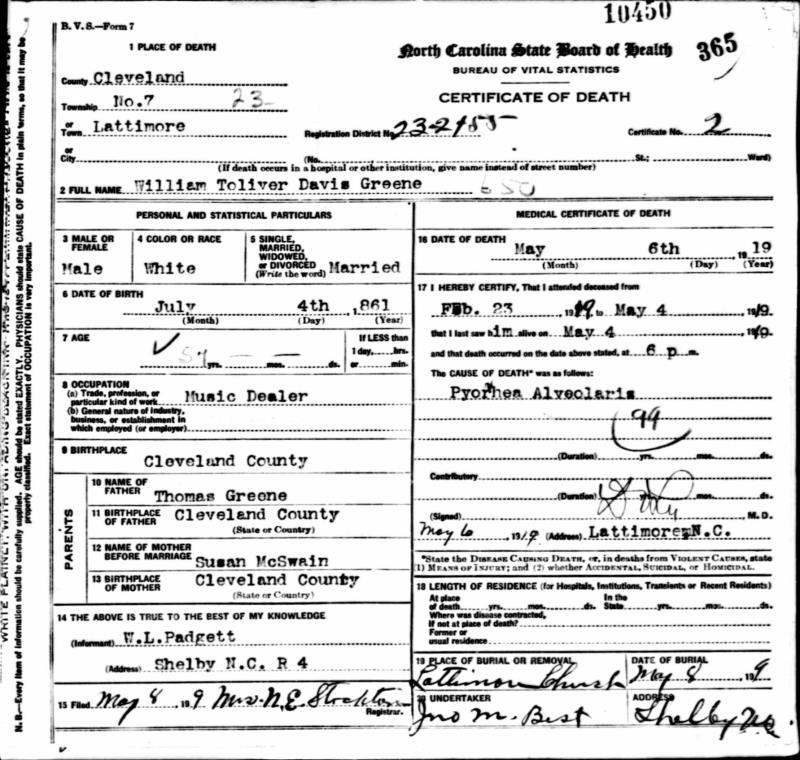 10450
B. V. S.—Form 7
1 PLACE OF DEATH
North Carolina State Board of Health
365
BUREAU OF VITAL STATISTICS
CERTIFICATE OF DEATH
County Cleveland
Township No.7 23
or Town Lattimore
Registration District No. 23-2155
Certificate No. 2
or City (No. St.; Ward)
(If death occurs in a hospital or other institution, give name instead of street number)
2 FULL NAME William Toliver Davis Greene 650
PERSONAL AND STATISTICAL PARTICULARS
3 MALE OR FEMALE
Male
4 COLOR OR RACE
White
5 SINGLE, MARRIED, WIDOWED, or DIVORCED (Write the word) Married
6 DATE OF BIRTH
July 4th ,1861
(Month) (Day) (Year)
7 AGE
57 yrs. — mos. — ds.
If LESS than 1 day, hrs. or min.
8 OCCUPATION
(a) Trade, profession, or particular kind of work Music Dealer
(b) General nature of industry, business, or establishment in which employed (or employer)
9 BIRTHPLACE
Cleveland County
PARENTS
10 NAME OF FATHER Thomas Greene
11 BIRTHPLACE OF FATHER Cleveland County
(State or Country)
12 NAME OF MOTHER BEFORE MARRIAGE Susan McSwain
13 BIRTHPLACE OF MOTHER Cleveland County
(State or Country)
14 THE ABOVE IS TRUE TO THE BEST OF MY KNOWLEDGE
(Informant) W.L.Padgett
(Address) Shelby N.C. R 4
15 Filed May 8, 1919 Mrs. N.E. Stockton
Registrar.
MEDICAL CERTIFICATE OF DEATH
16 DATE OF DEATH
May 6th ,1919
(Month) (Day) (Year)
17 I HEREBY CERTIFY, That I attended deceased from
Feb. 23 1919 to May 4 1919
that I last saw him alive on May 4 1919.
and that death occurred on the date above stated, at 6 p m.
The CAUSE OF DEATH* was as follows:
Pyorhea Alveolaris
99
(Duration) yrs. mos. ds.
Contributory
(Duration) mos. ds.
(Signed) M. D.
May 6, 1919 (Address) Lattimore, N.C.
*State the DISEASE CAUSING DEATH, or, in deaths from VIOLENT CAUSES, state
(1) MEANS OF INJURY; and (2) whether ACCIDENTAL, SUICIDAL, or HOMICIDAL.
18 LENGTH OF RESIDENCE (for Hospitals, Institutions, Transients or Recent Residents)
At place of death yrs. mos. ds. In the State yrs. mos. ds.
Where was disease contracted,
If not at place of death?
Former or usual residence
19 PLACE OF BURIAL OR REMOVAL
Lattimore Church
DATE OF BURIAL
May 8 1919
20 UNDERTAKER
Jno M. Best
ADDRESS
Shelby NC.
N. B.—Every item of information should be carefully supplied. AGE should be stated EXACTLY. PHYSICIANS should state CAUSE OF DEATH in plain terms, so that it may be
properly classified. Exact statement of OCCUPATION is very important.